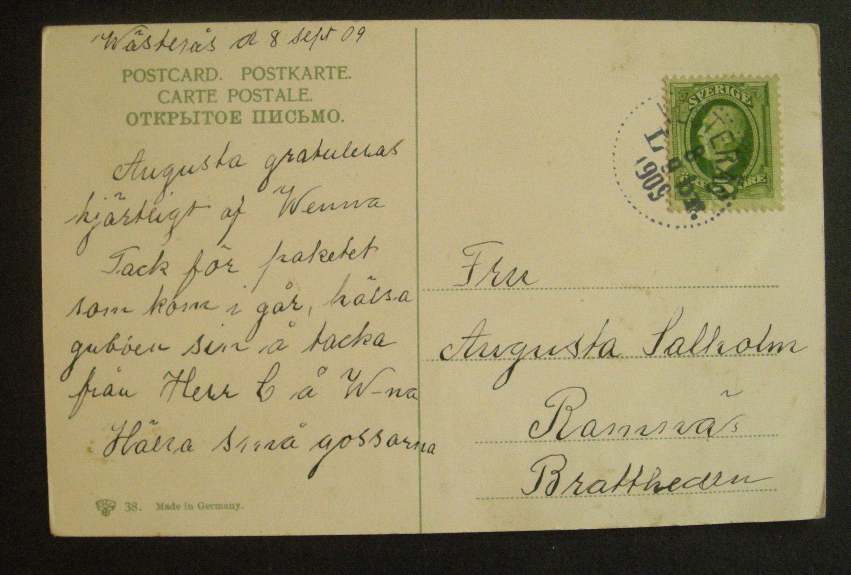 Wästerås d 8 sept 09
POSTCARD. POSTKARTE.
CARTE POSTALE.
ОТКРЫТОЕ ПИСЬМО.
Augusta gratuleras
hjärtligt af Wenna
Tack för paketet
som kom i går, hälsa
gubben sin å tacka
från Herr C å W-na
Hälsa små gossarna
38. Made in Germany.
SVERIGE
1909
Fru
Augusta Salholm
Ramnäs
Brattheden